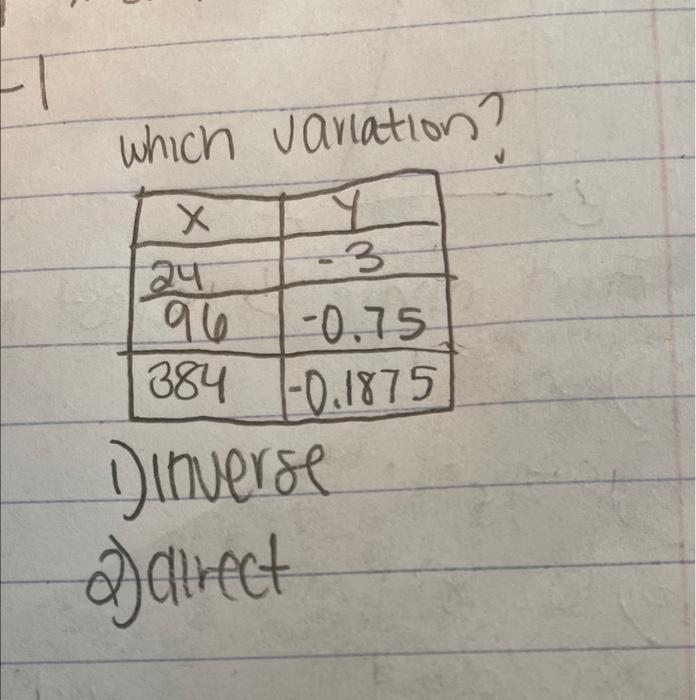 -1
which variation?
x y
24 -3
96 -0.75
384 -0.1875
1) inverse
2) direct